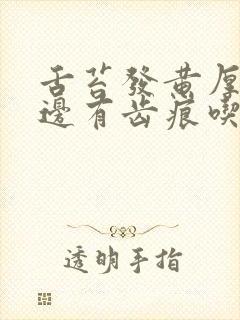 舌苔發黃厚
邊有齿痕喫
透明手指